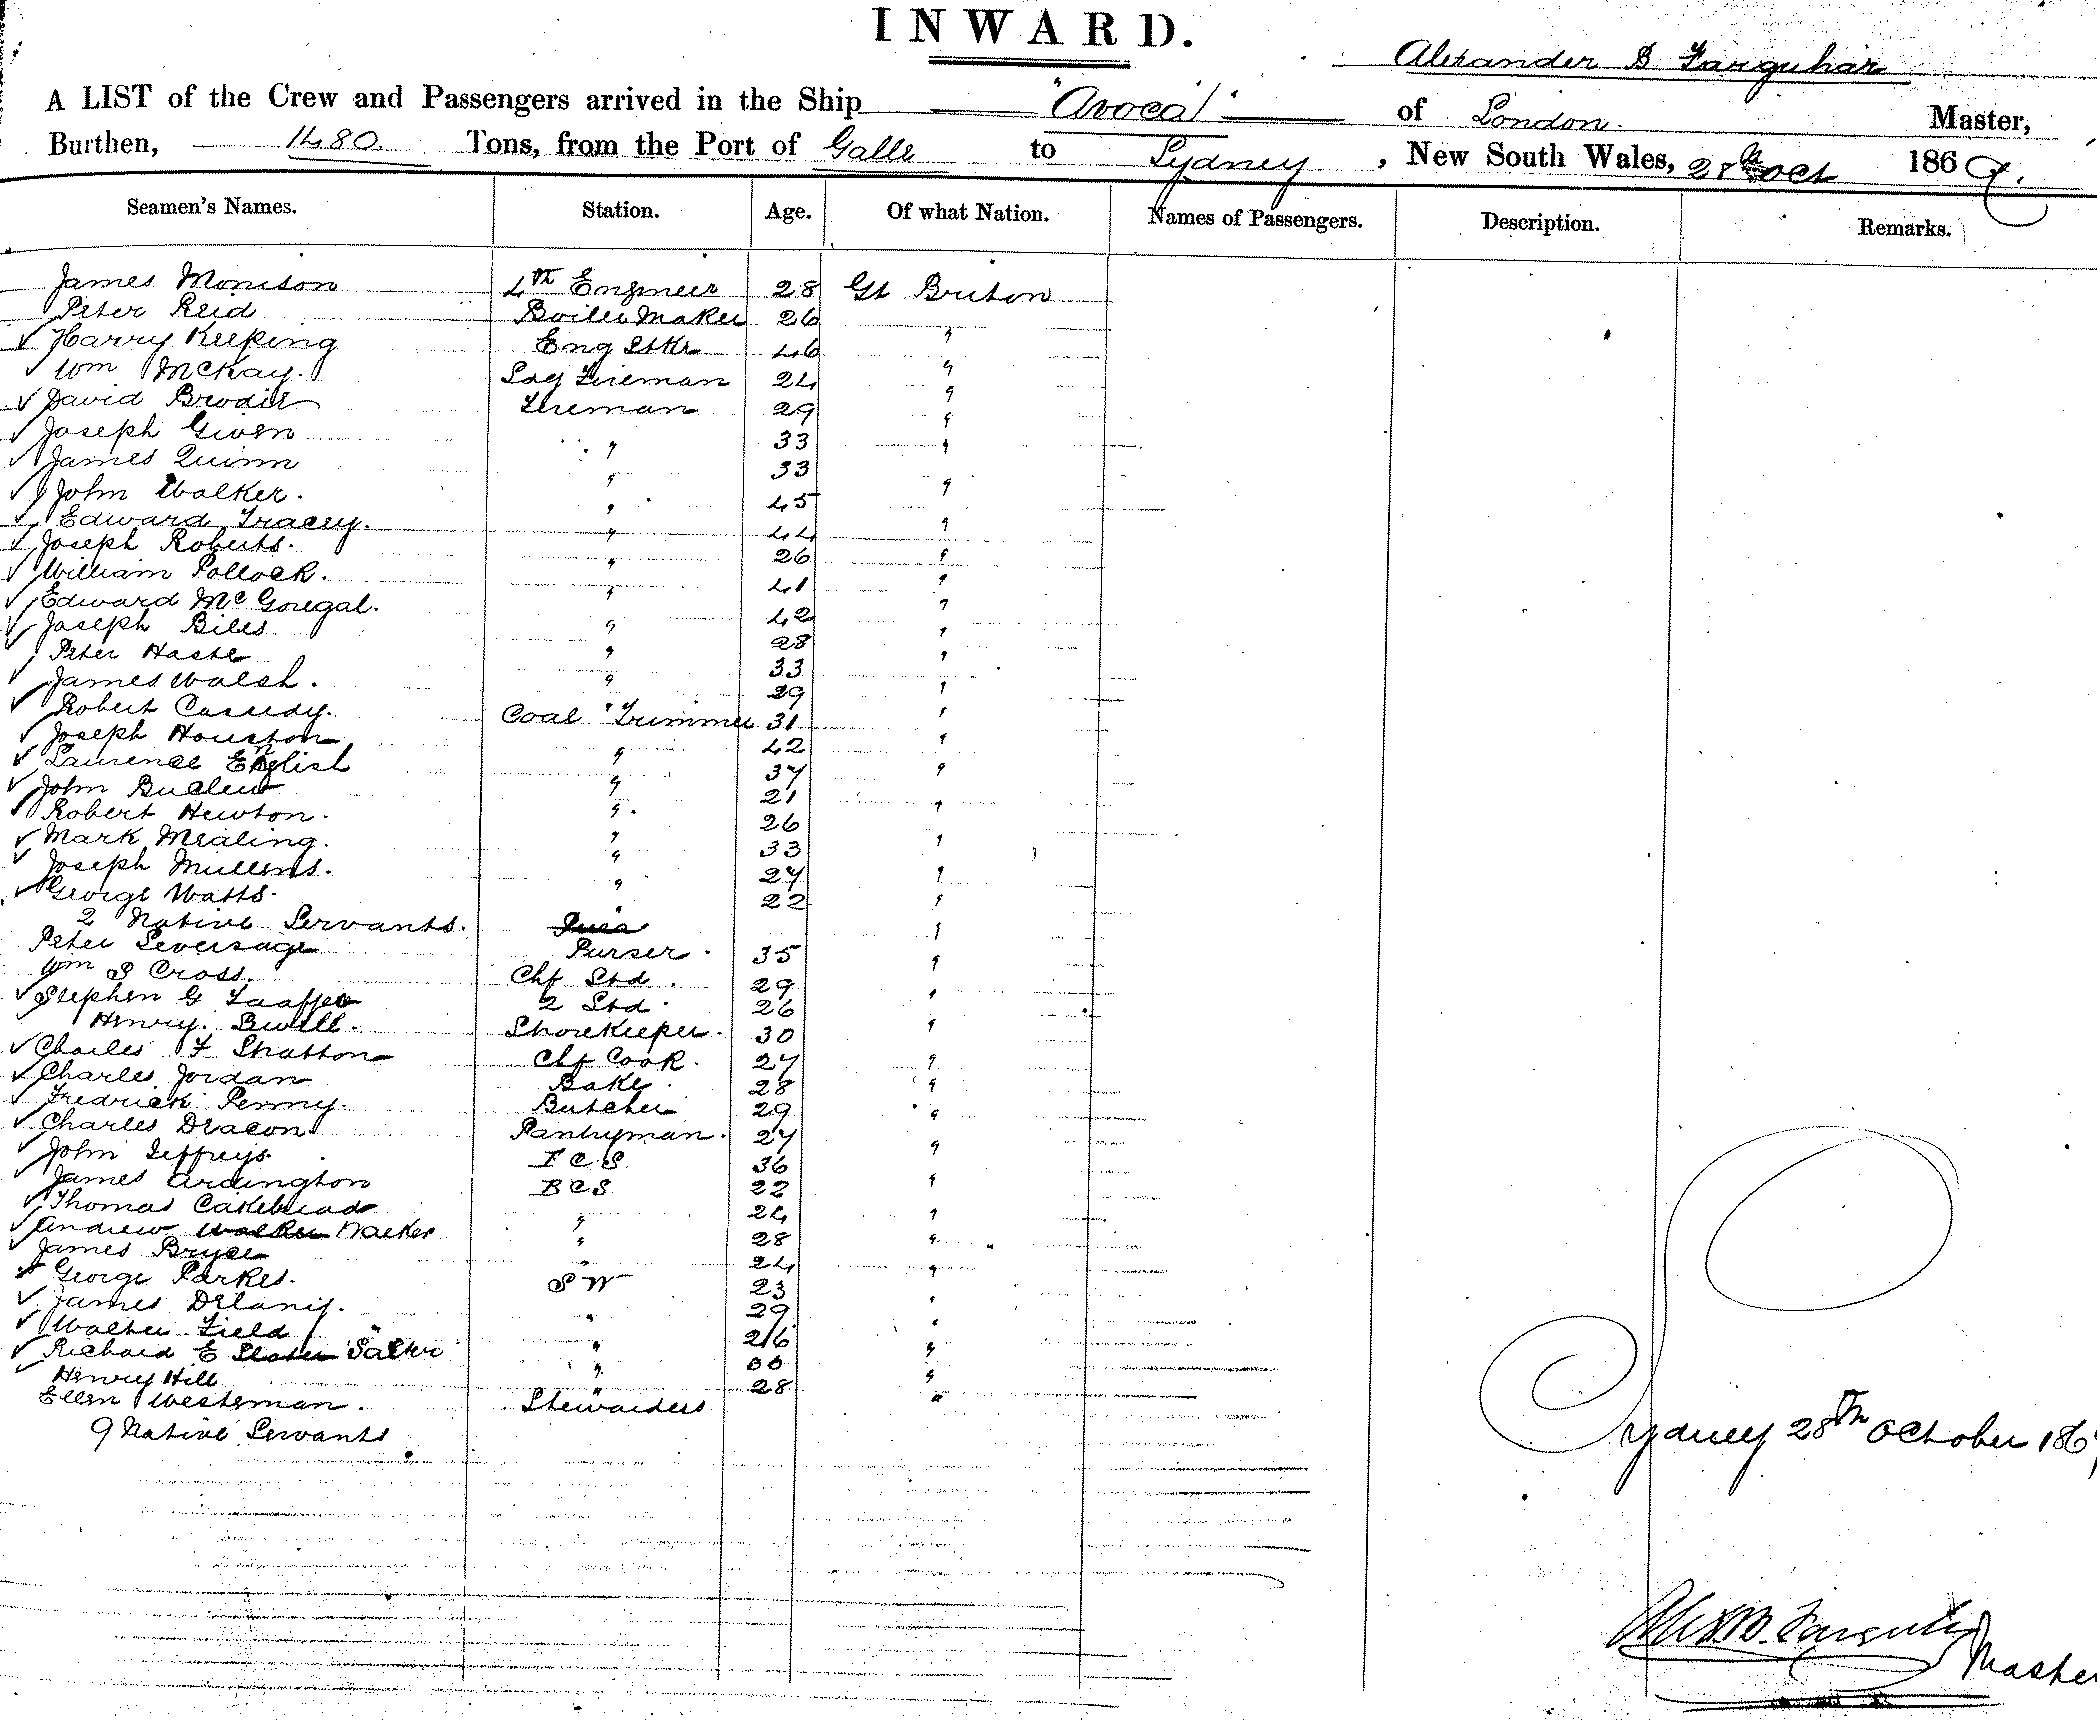 INWARD.
Alexander B Farquhar
A LIST of the Crew and Passengers arrived in the Ship "Avoca" of London Master,
Burthen, 1480 Tons, from the Port of Galle to Sydney, New South Wales, 28th Oct 1869.
Seamen's Names. Station. Age. Of what Nation. Names of Passengers. Description. Remarks.
James Morrison 4th Engineer 28 Gt Briton
Peter Reid Boiler Maker 26 "
Harry Keeping Eng Stkr 46 "
Wm McKay. Fireman 24 "
David Brodie Fireman 29 "
Joseph Given " 33 "
James Quinn " 33
John Walker. " 45 "
Edward Tracey. " 44 "
Joseph Roberts. " 26 "
William Pollock. " 41 "
Edward McGonegal. " 42 "
Joseph Biles " 28 "
Peter Haste " 33 "
James Walsh. " 29 "
Robert Cassidy. Coal Trimmer 31 "
Joseph Houston " 42 "
Laurence English " 37 "
John " 21 "
Robert Newton. " 26 "
Mark Mealing. " 33 "
Joseph Mullens. " 27 "
George Watts. " 22 "
2 Native Servants. "
Peter Leversage Purser. 35 "
Wm S Cross. Chf Std. 29 "
Stephen G Taaffe 2 Std. 26 "
Henry. Storekeeper. 30 "
Charles F Stratton Chf Cook. 27 "
Charles Jordan Bake. 28 "
Fredrick Penny. Butcher 29 "
Charles Deacon Pantryman. 27 "
John Jeffreys. 36 "
James Ardington B C S 22 "
Thomas Cakebread " 24 "
Andrew Walker " 28 "
James Bryce " 24 "
George Parkes. S W 23 "
James Delany. " 29 "
Walter Field " 26 "
Richard E " "
Henry Hill " 28 "
Ellen Westerman. Stewardess
9 Native Servants
Sydney 28th October 186
Alexr B. Farquhar
Master